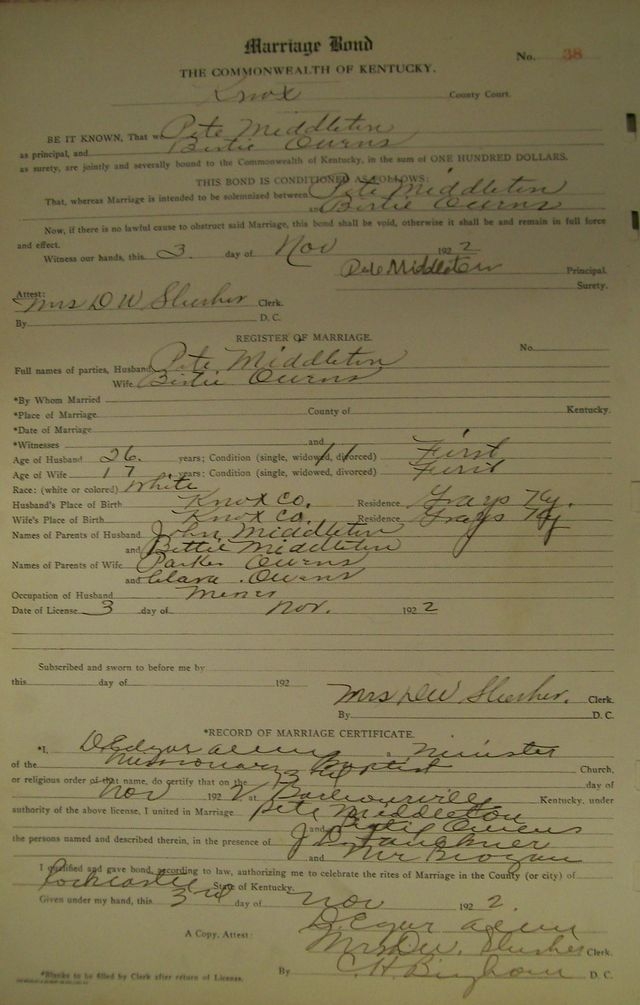 Marriage Bond
No. 38
THE COMMONWEALTH OF KENTUCKY.
Knox County Court.
BE IT KNOWN, That we Pete Middleton
as principal, and Birtie Owens
as surety, are jointly and severally bound to the Commonwealth of Kentucky, in the sum of ONE HUNDRED DOLLARS.
THIS BOND IS CONDITIONED AS FOLLOWS:
That, whereas Marriage is intended to be solemnized between Pete Middleton
and Birtie Owens
Now, if there is no lawful cause to obstruct said Marriage, this bond shall be void, otherwise it shall be and remain in full force
and effect.
Witness our hands, this 3 day of Nov 1922
Pete Middleton Principal.
Surety.
Attest:
Mrs D W Slusher Clerk.
By D. C.
REGISTER OF MARRIAGE.
No.
Full names of parties, Husband Pete Middleton
Wife Birtie Owens
*By Whom Married
*Place of Marriage County of Kentucky.
*Date of Marriage
*Witnesses and
Age of Husband 26 years; Condition (single, widowed, divorced) First
Age of Wife 17 years; Condition (single, widowed, divorced) First
Race: (white or colored) White
Husband's Place of Birth Knox Co. Residence Grays Ky.
Wife's Place of Birth Knox Co. Residence Grays Ky
Names of Parents of Husband John Middleton
and Bettie Middleton
Names of Parents of Wife Parker Owens
and Clara Owens
Occupation of Husband Miner
Date of License 3 day of Nov. 1922
Subscribed and sworn to before me by
this day of 192
Mrs D W Slusher. Clerk.
By D. C.
*RECORD OF MARRIAGE CERTIFICATE.
*I, D. Edgar Allen a Minister
of the Missionary Baptist Church,
or religious order of that name, do certify that on the 3rd day of
Nov 1922 at Barbourville Kentucky, under
authority of the above license, I united in Marriage Pete Middleton
and Birtie Owens
the persons named and described therein, in the presence of J. D. Faulkner
and Mr Brogan
I qualified and gave bond, according to law, authorizing me to celebrate the rites of Marriage in the County (or city) of
Rockcastle State of Kentucky.
Given under my hand, this 3rd day of Nov 1922.
D. Edgar Allen
A Copy, Attest: Mrs D. W. Slusher Clerk.
By C. H. Bingham D. C.
*Blanks to be filled by Clerk after return of License.